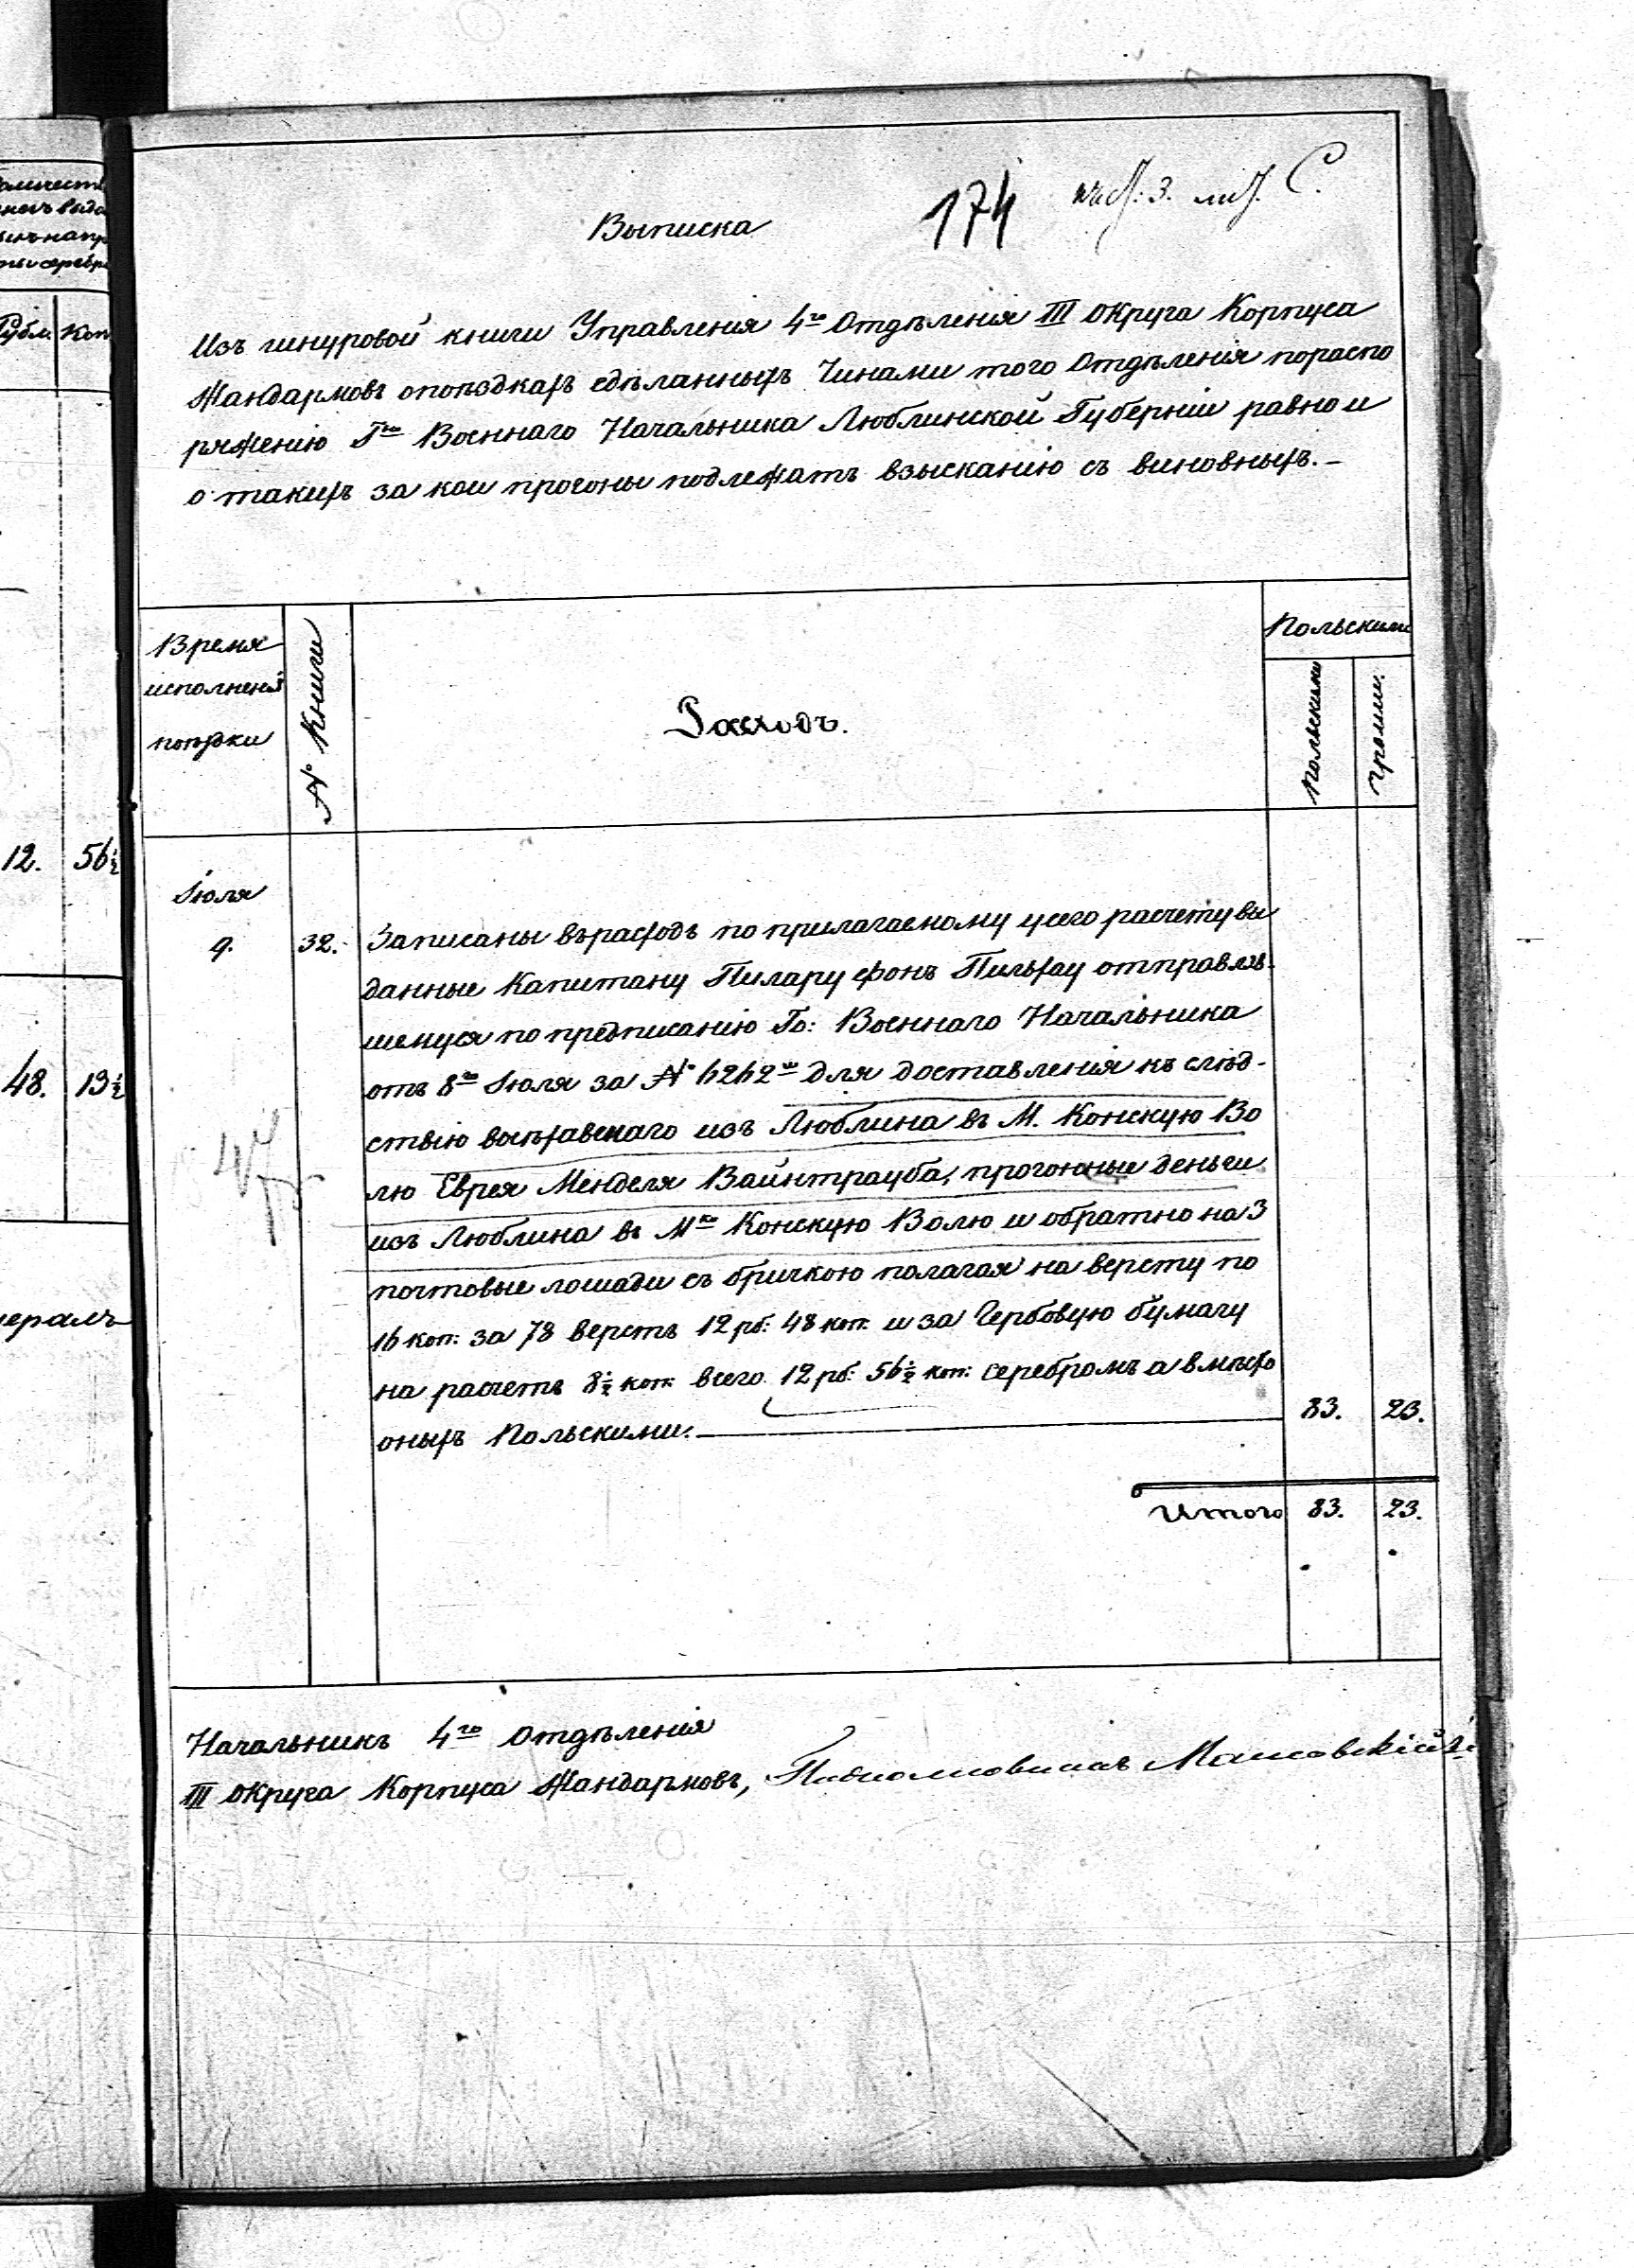 Выписка
174
лит. С.
Изъ шнуровой книги Управленія 4го Отдѣленія III Округа Корпуса
Жандармовъ опоѣздкахъ сдѣланныхъ Чинами того Отдѣленія пораспо
ряженію Гна Военнаго Начальника Люблинской Губерніи равно и
о такихъ за кои прогоны подлежатъ взысканію съ виновныхъ.-
Время
исполненія
поѣздки
№ Книги
Расходъ.
Польскими
Польскими
Грошии.
Іюля
9.
32.
Записаны върасходъ по прилагаемому усего расчету вы
данные Капитану Пилару фонъ Пильхау отправляв-
шемуся по предписанію Го: Военнаго Начальника
отъ 8го Іюля за № 6262м для доставленія къ слѣд-
ствію выѣхавшаго изъ Люблина въ М. Конскую Во
лю Еврея Менделя Вайнтрауба, прогонные деньги
изъ Люблина въ Мко Конскую Волю и обратно на 3
почтовые лошади съ бричкою полагая на версту по
16 коп: за 78 верстъ 12 рб: 48 коп: и за Гербовую бумагу
на расчетъ 8½ коп: всего 12 рб: 56½ коп: серебромъ а вмѣсто
оныхъ Польскими.
83. 23.
Итого 83. 23.
Начальникъ 4го Отдѣленія
III Округа Корпуса Жандармовъ, Подполковникъ
Рубл. Коп
12. 56½
48. 13½